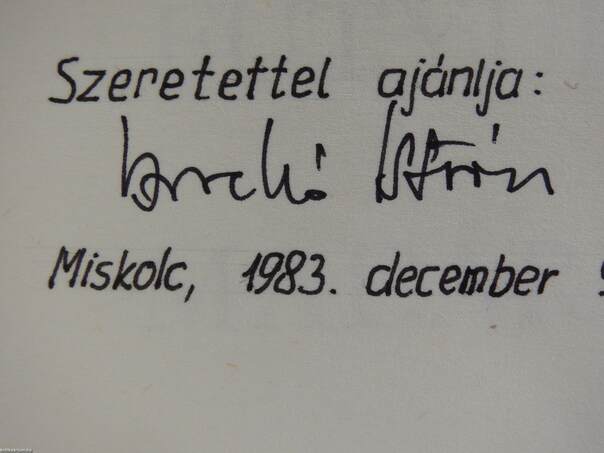 Szeretettel ajánlja:
István
Miskolc, 1983. december